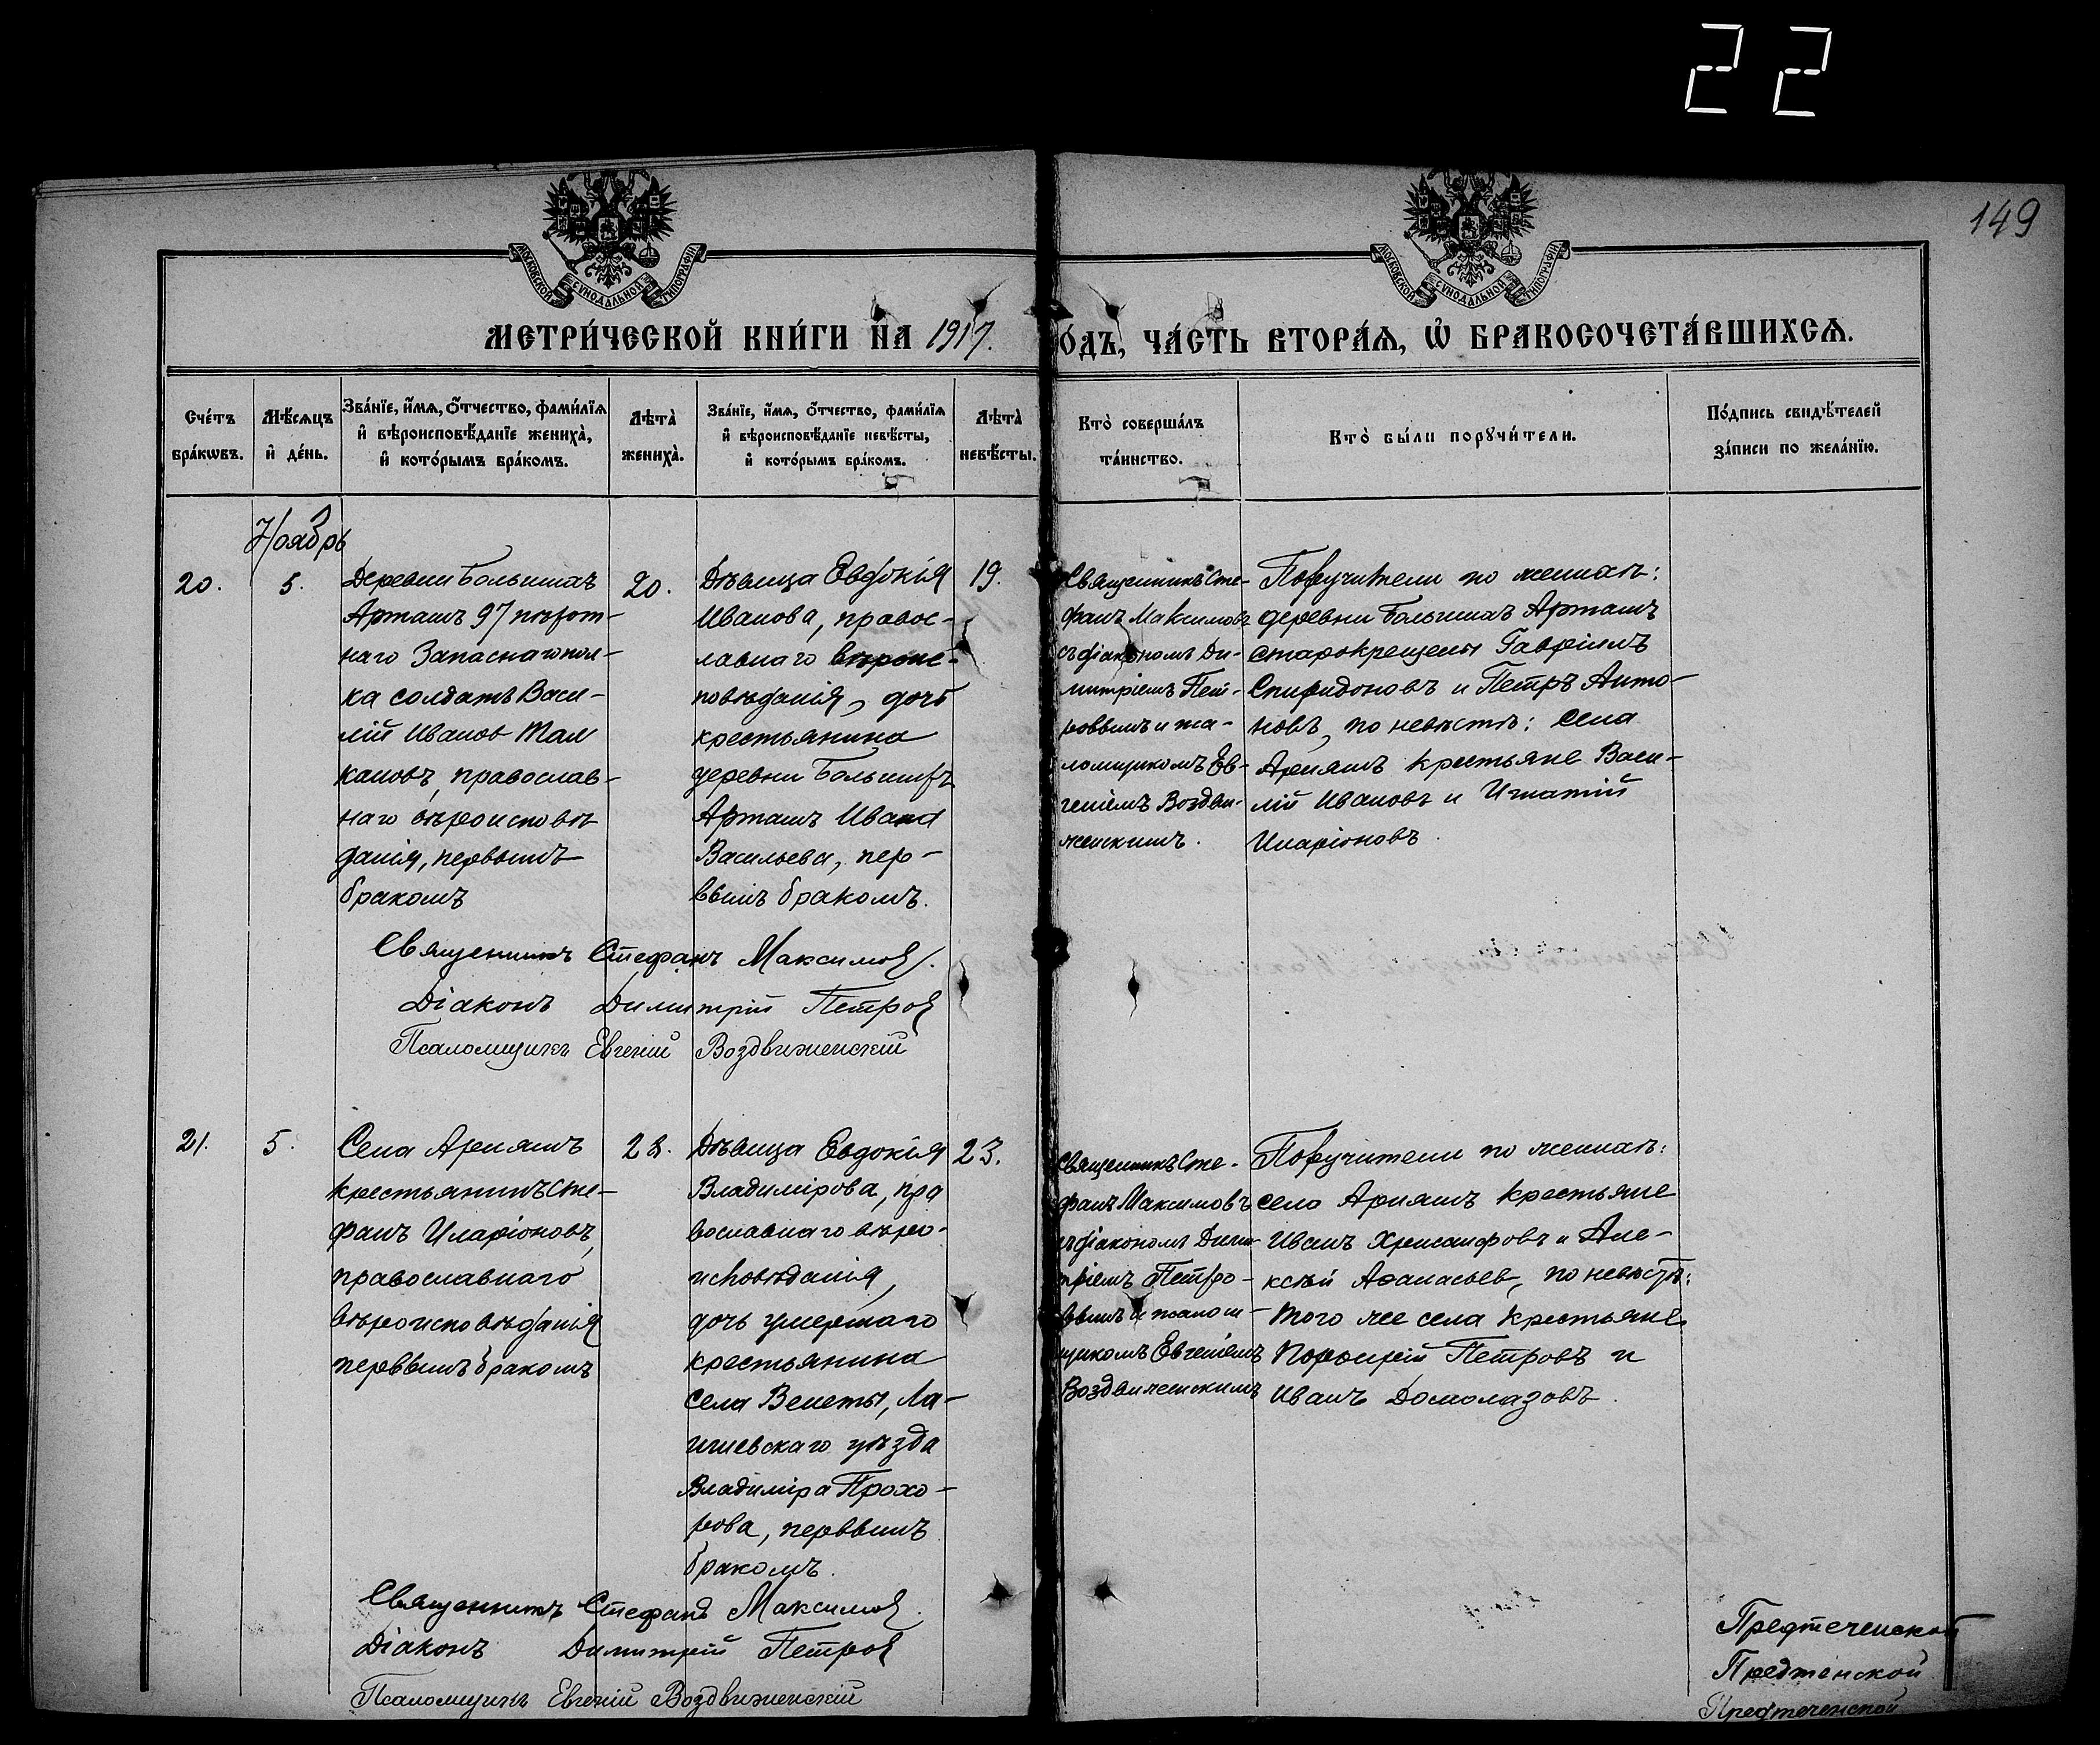 22
149
МОСКОВСКОЙ СѴНОДАЛЬНОЙ ТИПОГРАФІИ
МОСКОВСКОЙ СѴНОДАЛЬНОЙ ТИПОГРАФІИ
МЕТРИ́ЧЕСКОЙ КНИ́ГИ НА 1917.
О́ДЪ, ЧА́СТЬ ВТОРА́Ѧ, Ѿ БРАКОСОЧЕТА́ВШИХСѦ.
Сче́тъ
бра́кѡвъ.
Мѣ́сѧцъ
и҆ де́нь.
Зва́нїе, и҆́мѧ, ѻ҆́тчество, фами́лїѧ
и҆ вѣроисповѣ́данїе жениха̀,
и҆ кото́рымъ бра́комъ.
Лѣта̀
жениха̀.
Зва́нїе, и҆́мѧ, ѻ҆́тчество, фами́лїѧ
и҆ вѣроисповѣ́данїе невѣ́сты,
и҆ кото́рымъ бра́комъ.
Лѣта̀
невѣ́сты.
Кто̀ соверша́лъ
та́инство.
Кто̀ бы́ли порꙋчи́тели.
По́дпись свидѣ́телей
за́писи по жела́нїю.
Ноябрь
20.
5.
Деревни Большихъ
Арташъ 97 пѣхот-
наго Запаснаго пол-
ка солдатъ Васи-
лій Иванов Тал
кановъ, православ-
наго вѣроисповѣ
данія, первымъ
бракомъ
20.
Дѣвица Евдокія
Иванова, правос-
лавнаго вѣроис-
повѣданія, дочь
крестьянина
деревни Большихъ
Арташъ Ивана
Васильева, пер-
вымъ бракомъ.
19.
Священникъ Сте-
фанъ Максимовъ
съ діакономъ Ди-
митріемъ Пет-
ровымъ и
ломщикомъ Ев-
геніемъ Воздви-
женскимъ.
Поручители по женихѣ:
деревни Большихъ Арташъ
старокрещены Гавріилъ
Спиридоновъ и Петръ Анто-
новъ, по невѣстѣ: села
Аришъ крестьяне Васи-
лій Ивановъ и Игнатій
Иларіоновъ.
Священникъ Стефанъ Максимов.
Діаконъ Димитрій Петров
Псаломщикъ Евгеній Воздвиженскій
21.
5.
Села Арияшъ
крестьянинъ Сте-
фанъ Иларіоновъ,
православнаго
вѣроисповѣданія
первымъ бракомъ
Дѣвица Евдокія
Владимірова, пра
вославнаго вѣро-
исповѣданія,
дочь умершаго
крестьянина
села Венеты, Ла-
ишевскаго уѣзда
Владиміра Прохо-
рова, первымъ
бракомъ.
23.
Священникъ Сте-
фанъ Максимовъ
съ діакономъ Дими-
тріемъ Петро-
вымъ и псалом-
щикомъ Евгеніемъ
Воздвиженскимъ
Поручители по женихѣ:
село Арияшъ крестьяне
Иванъ Хрисанфовъ и Але-
ксѣй Афанасьев, по невѣстѣ:
того же села крестьяне
Порфирій Петровъ и
Иванъ Домолазовъ.
Священникъ Стефанъ Максимов.
Діаконъ Димитрій Петров
Псаломщикъ Евгеній Воздвиженскій
Предтеченской
Предтенской
Предтеченской